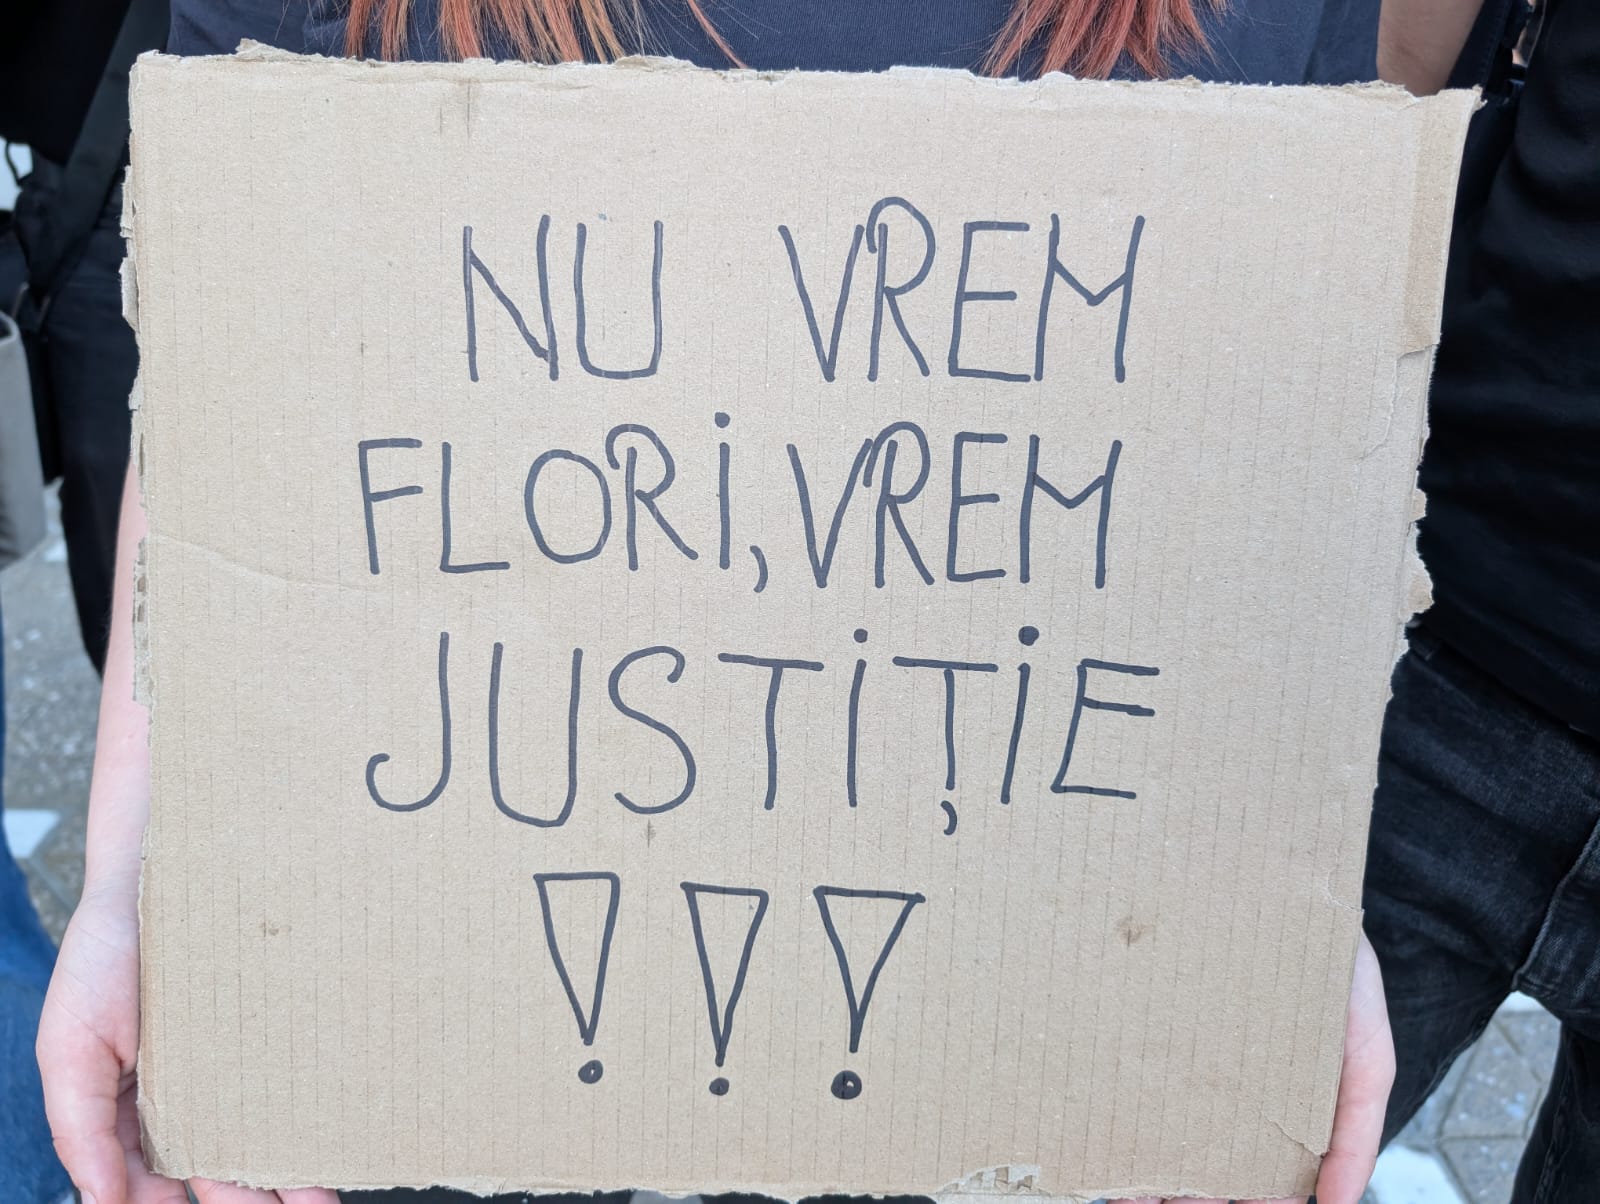 NU VREM
FLORI, VREM
JUSTIȚIE
!!!